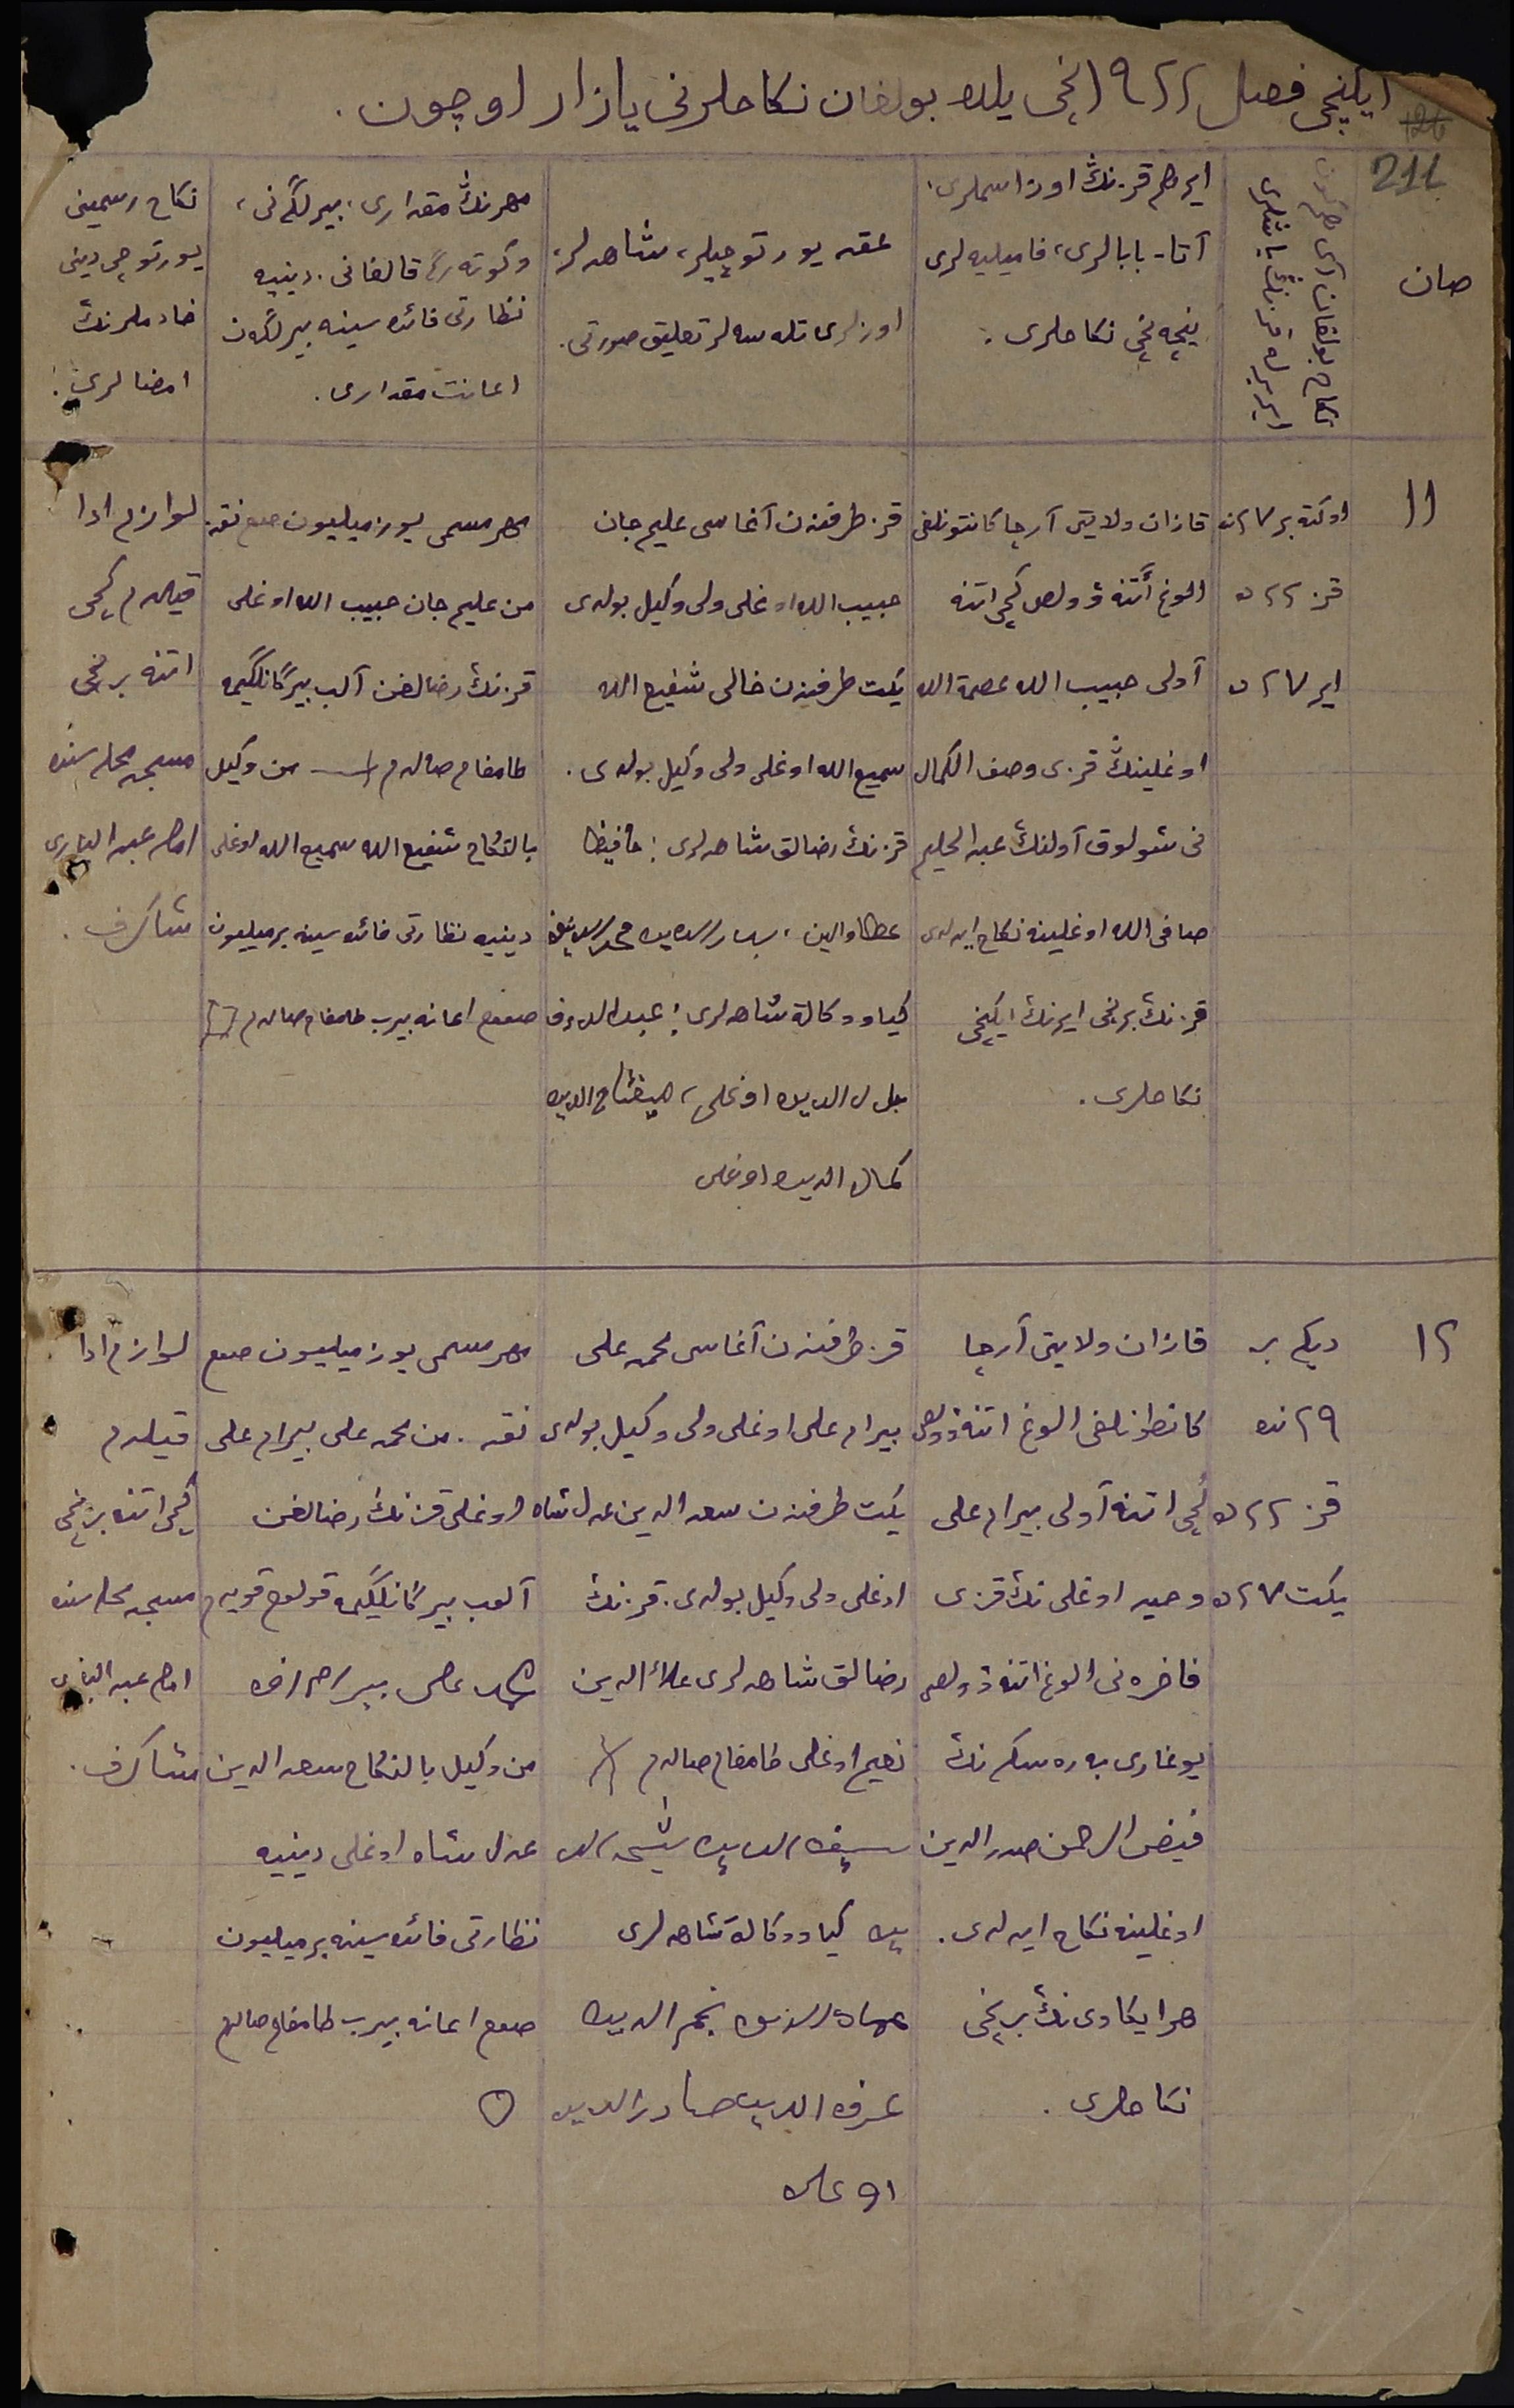 ایکنچی فصل ١٩٢٢ نچی یلده بولغان نکاحلرنی یازار اوچون.
211
صان
نکاح بولغان آی هم کون
ایر برله قزنڭ یاشلری
ایر هم قزنڭ اوز اسملری،
آتا - بابالری، فامیلیه لری
نیچه نچی نکاحلری.
عقد یورتوچیلر، شاهدلر،
اوزلری تله سه لر تعلیق صورتی.
مهرنڭ مقداری، بیرلگەنی،
وکوته رگه قالغانی. دینیه
نظارتی فائده سینه بیرلگەن
اعانت مقداری.
نکاح رسمینی
یورتوچی دینی
خادملرنڭ
امضالری.
١١
اوکتەبر ٢٧ ده
قز ٢٢ ده
ایر ٢٧ ده
قازان ولایتی آرچا کانتونلغی
الوغ أتنه ۋولص کچی اتنه
آولی حبیب الله عصمة الله
اوغلینڭ قزی وصف الکمال
نی شولوق آولنڭ عبد الحلیم
صافی الله اوغلینه نکاح ایدلدی
قزنڭ برنچی ایرنڭ ایکنچی
نکاحلری.
قز طرفندن آغاسی علیم جان
حبیب الله اوغلی ولی وکیل بولدی
یکت طرفندن خالی شفیع الله
سمیع الله اوغلی ولی وکیل بولدی.
قزنڭ رضالق شاهدلری: حافیظا
کیاو وکالة شاهدلری: عبدالرءوف
جلال الدین اوغلی، میفتاح الدین
کمال الدین اوغلی
مهر مسمی یوز میلیون صوم نقد
من علیم جان حبیب الله اوغلی
قزنڭ رضالغن آلب بیرگانلگیمه
طامغام صالدم من وکیل
بالنکاح شفیع الله سمیع الله اوغلی
دینیه نظارتی فائده سینه بر میلیون
صوم اعانه بیرب طامغام صالدم
لوازم ادا
قیلدم کچی
اتنه برنچی
مسجد محله سنده
امام عبد الباری
شاکرف.
١٢
دیکەبر
٢٩ نده
قز ٢٢ ده
یکت ٢٧ ده
قازان ولایتی آرچا
کانطونلغی الوغ اتنه ۋولص
کچی اتنه آولی بیرام علی
وحید اوغلی نڭ قزی
فاخره نی الوغ اتنه ۋولص
یوغاری بەرەسکە نڭ
فیض الرحمن صدر الدین
اوغلینه نکاح ایدلدی.
هر ایکاوی نڭ برنچی
نکاحلری.
قز طرفندن آغاسی محمد علی
بیرام علی اوغلی ولی وکیل بولدی
یکت طرفندن سعد الدین عدل شاه
اوغلی ولی وکیل بولدی. قزنڭ
رضالق شاهدلری علاء الدین
نعیم اوغلی طامغام صالدم
کیاو وکالة شاهدلری
نجم الدین
مهر مسمی یوز میلیون صوم
نقد. من محمد علی بیرام علی
اوغلی قزنڭ رضالغن
آلوب بیرگانلیگیمه قولوم قویدم
من وکیل بالنکاح سعد الدین
عدل شاه اوغلی دینیه
نظارتی فائده سینه بر میلیون
صوم اعانه بیرب طامغام صالدم
لوازم ادا
قیلدم
کچی اتنه برنچی
مسجد محله سنده
امام عبد الباری
شاکرف.